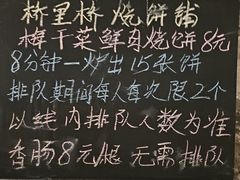 桥里桥烧饼铺
梅干菜鲜肉烧饼8元
8分钟一炉出15张饼
排队期间每人每次限2个
以线内排队人数为准
香肠8元/根 无需排队